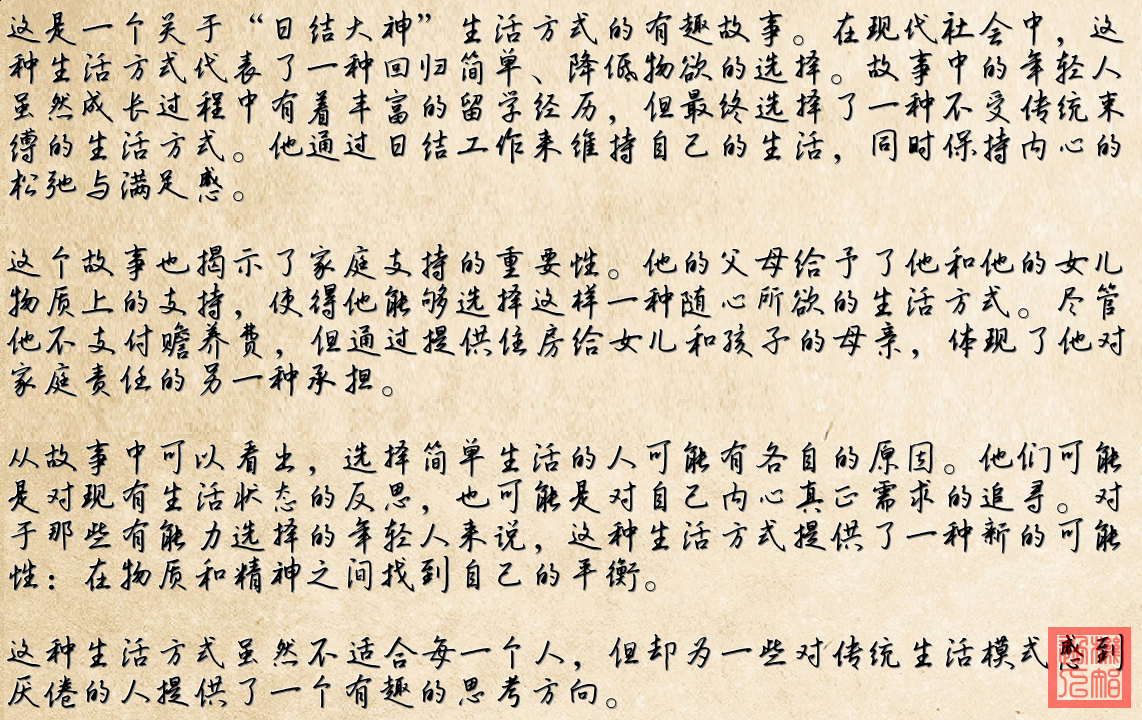 这是一个关于“日结大神”生活方式的有趣故事。在现代社会中，这
种生活方式代表了一种回归简单、降低物欲的选择。故事中的年轻人
虽然成长过程中有着丰富的留学经历，但最终选择了一种不受传统束
缚的生活方式。他通过日结工作来维持自己的生活，同时保持内心的
松弛与满足感。
这个故事也揭示了家庭支持的重要性。他的父母给予了他和他的女儿
物质上的支持，使得他能够选择这样一种随心所欲的生活方式。尽管
他不支付赡养费，但通过提供住房给女儿和孩子的母亲，体现了他对
家庭责任的另一种承担。
从故事中可以看出，选择简单生活的人可能有各自的原因。他们可能
是对现有生活状态的反思，也可能是对自己内心真正需求的追寻。对
于那些有能力选择的年轻人来说，这种生活方式提供了一种新的可能
性：在物质和精神之间找到自己的平衡。
这种生活方式虽然不适合每一个人，但却为一些对传统生活模式感到
厌倦的人提供了一个有趣的思考方向。